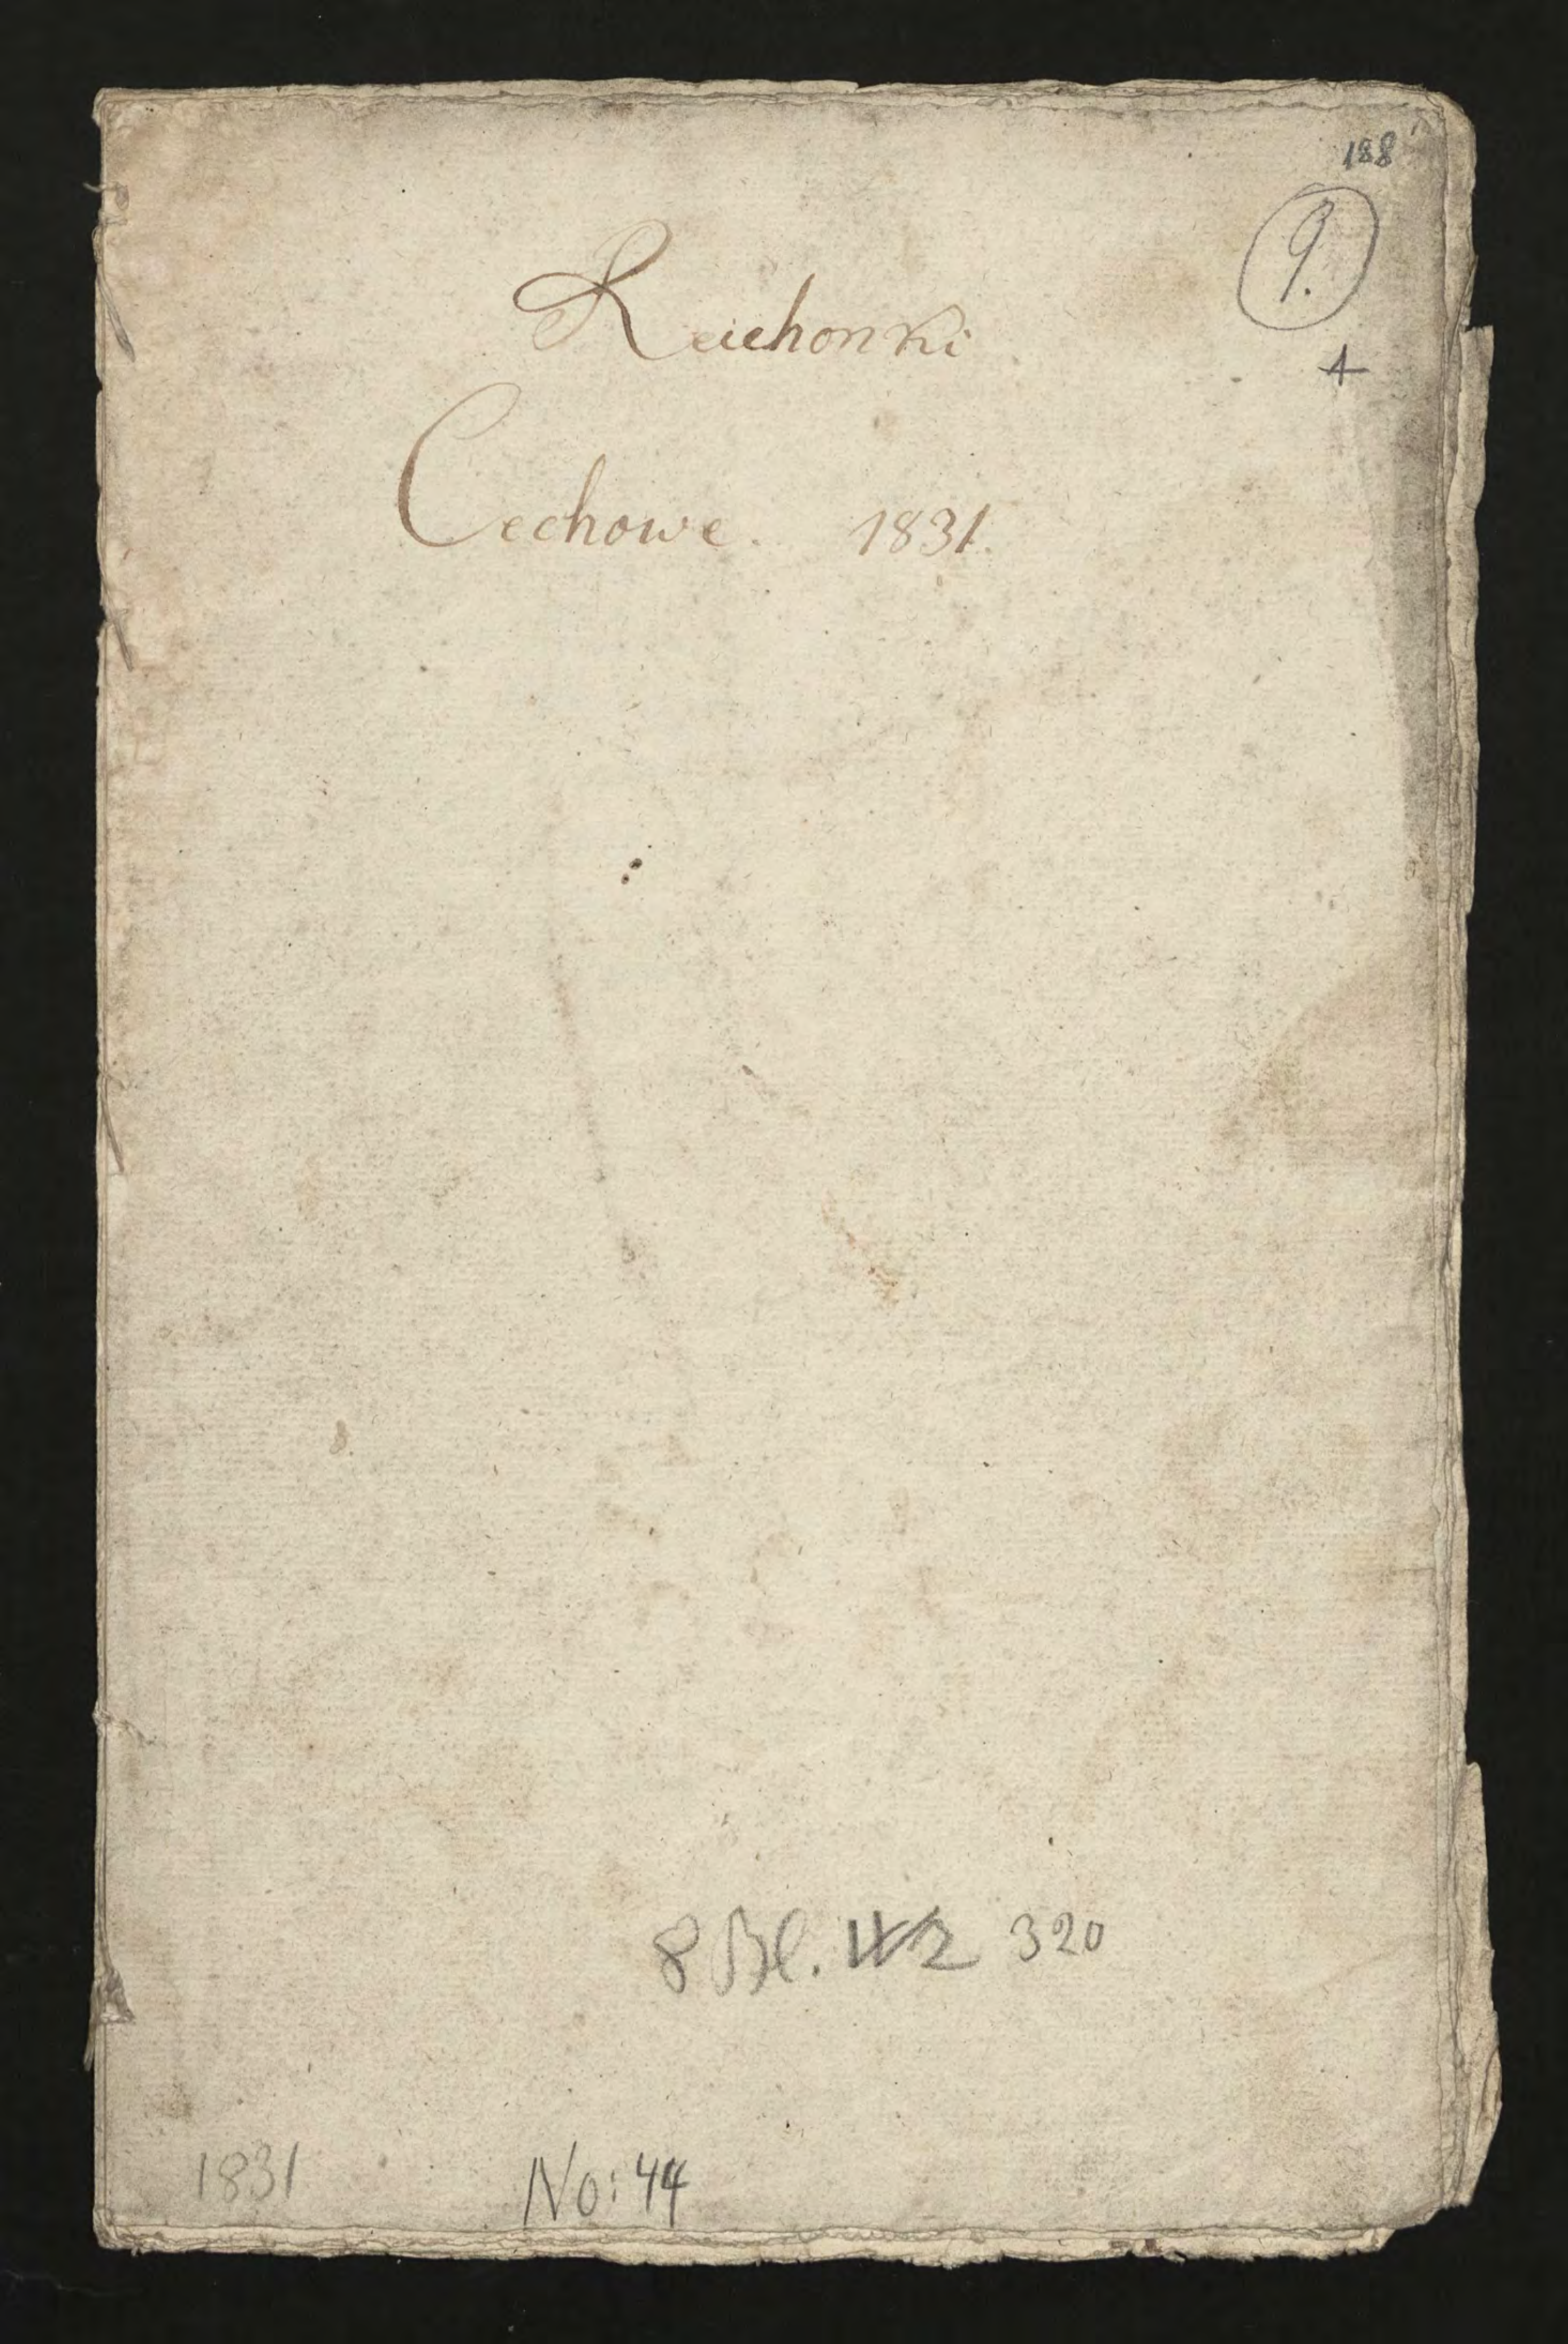 188
9.
Reichonki
Cechowe. 1831.
8 Bl. 320
1831
No: 44